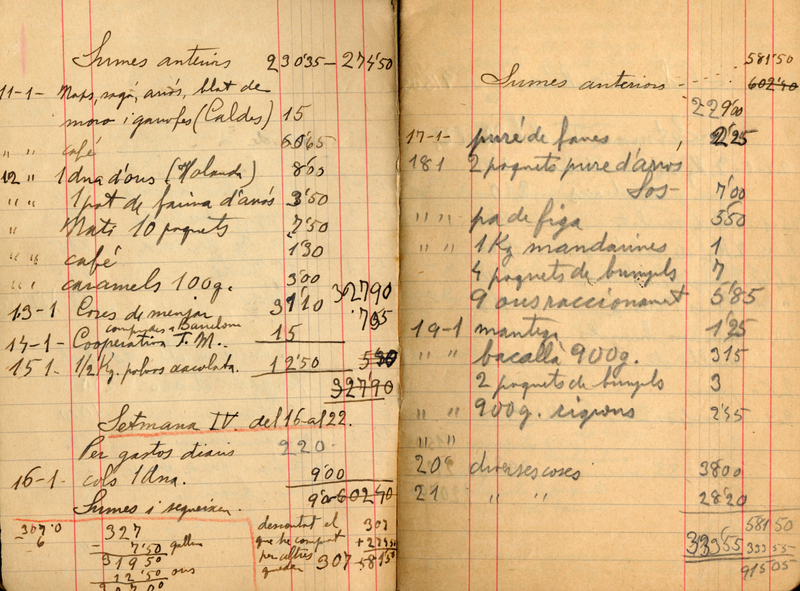 Sumes anteriors 230'35 - 274'50
11-1- Naps, sagú, arròs, blat de
moro i garrofes (Caldes) 15
" " café 60'65
12 " 1 dna d'ous (Holanda) 8'00
" " 1 pot de farina d'arròs 3'50
" Nati 10 paquets 7'50
" " café 1'30
" " caramels 100g. 3'00
327'90
13-1 Coses de menjar 31'10
comprades a Barcelona
7'95
14-1- Cooperativa T. M. 15
15 1- 1/2 Kg. polvos xacolata. 12'50
327'90
Setmana IV. del 16 al 22.
Per gastos diaris 220
16-1- cols 1 dna. 9'00
Sumes i segueixen. 9'00 602'40
307'0
6
327
- 7'50 gallina
319 50
12'50 ous
307 00
descontat el
que he comprat
per altres
queden 307
307
+ 274 50
581 50
581'50
Sumes anteriors - - - - - 602'40
229'00
17-1- puré de faves 2'25
18 1 2 paquets puré d'arròs
Sos- 7'00
" " pa de figa 5'50
" " 1 Kg mandarines 1
4 paquets de bunyols 7
9 ous raccionament 5'85
19-1 mantega 1'25
" " bacallà 900g. 3'15
2 paquets de bunyols 3
" " 900g. cigrons 2'55
" "
20 diverses coses 38'00
21 " " 28'20
581 50
333'55 333 55
915 05